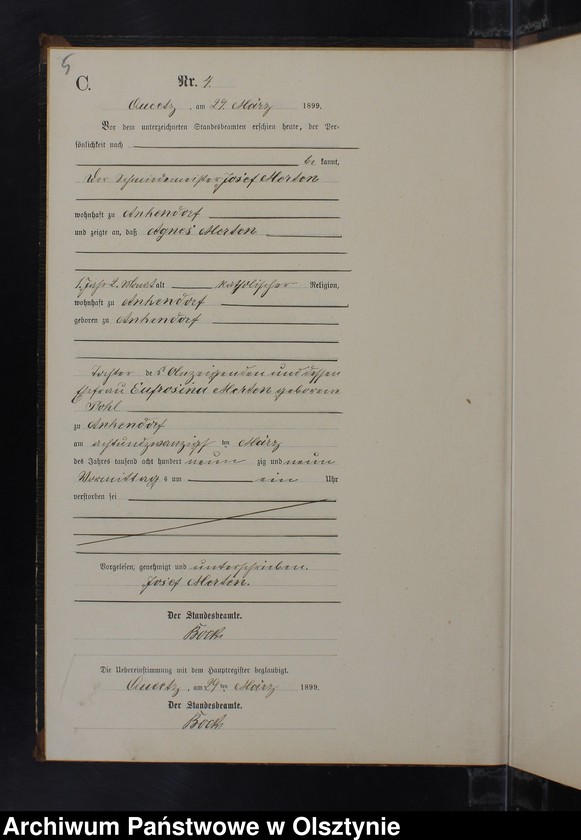 5
C.
Nr. 4.
Queetz, am 29. März 1899.
Vor dem unterzeichneten Standesbeamten erschien heute, der Per-
sönlichkeit nach
be kannt,
Der Schmiedemeister Josef Merten
wohnhaft zu Ankendorf
und zeigte an, daß Agnes Merten
1 Jahr 2 Monat alt katholischer Religion,
wohnhaft zu Ankendorf
geboren zu Ankendorf
Tochter des Anzeigenden und dessen
Ehefrau Eufrosina Merten geborene
Pohl
zu Ankendorf
am achtundzwanzigsten März
des Jahres tausend acht hundert neun zig und neun
Vormittags um ein Uhr
verstorben sei
Vorgelesen, genehmigt und unterschrieben.
Josef Merten.
Der Standesbeamte.
Die Uebereinstimmung mit dem Hauptregister beglaubigt.
Queetz, am 29ten März 1899.
Der Standesbeamte.
Archiwum Państwowe w Olsztynie